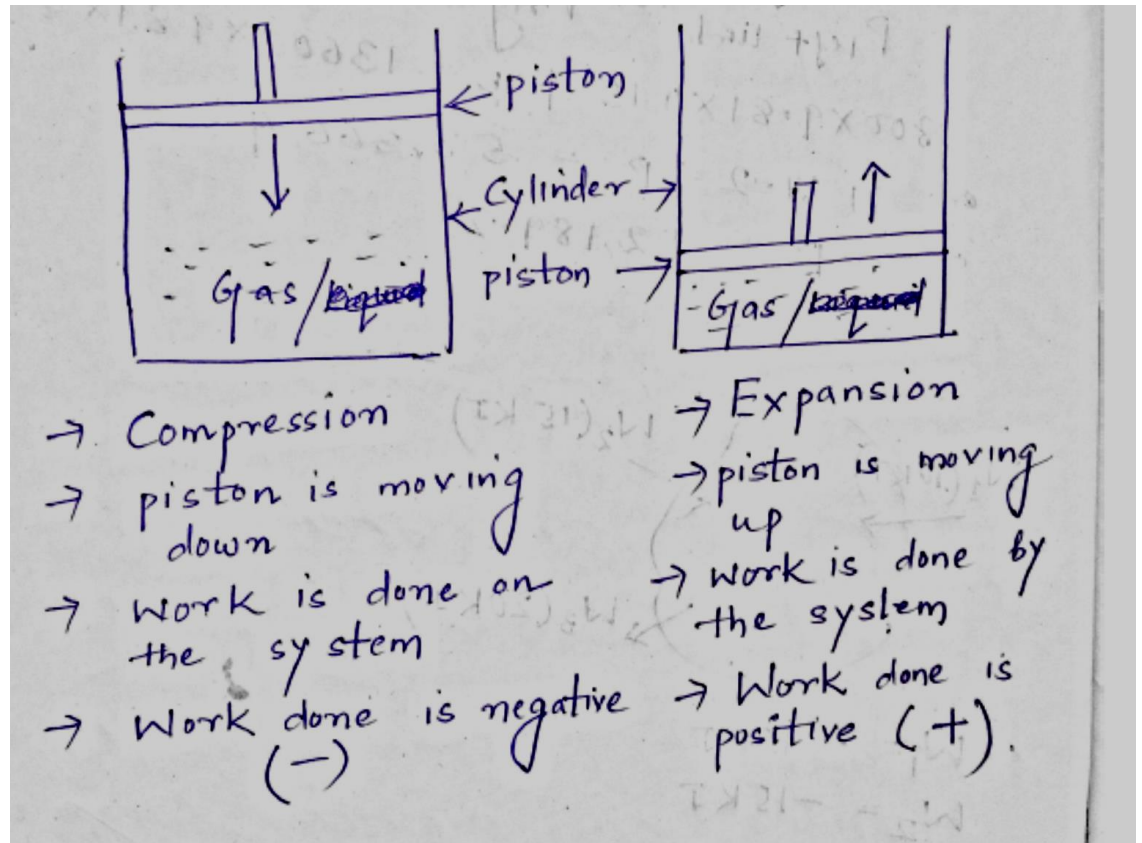 piston
Cylinder
piston
Gas/
Gas/
→ Compression
→ piston is moving
down
→ Work is done on
the system
→ Work done is negative
(-)
→ Expansion
→ piston is moving
up
→ Work is done by
the system
→ Work done is
positive (+).